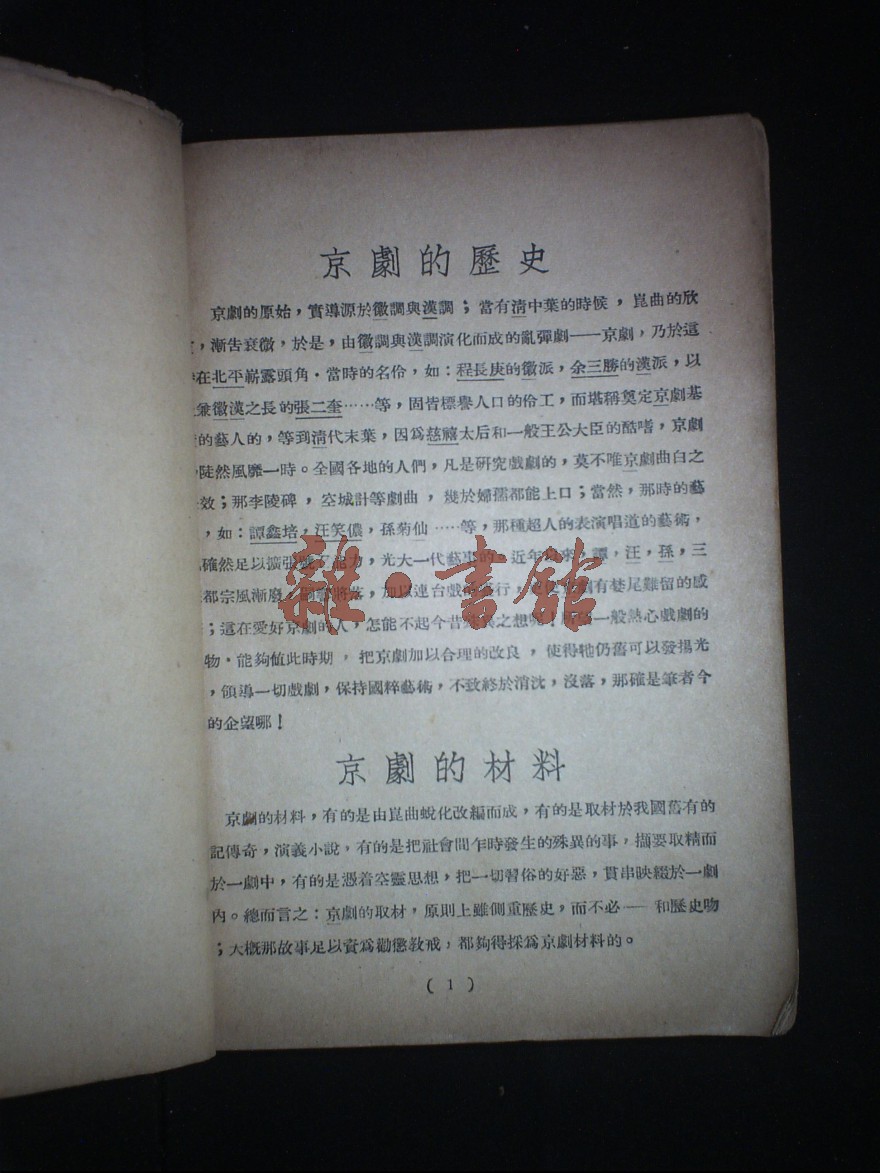 京劇的歷史
京劇的原始，實導源於徽調與漢調；當有清中葉的時候，崑曲的欣
，漸告衰微，於是，由徽調與漢調演化而成的亂彈劇——京劇，乃於這
在北平嶄露頭角．當時的名伶，如：程長庚的徽派，余三勝的漢派，以
兼徽漢之長的張二奎……等，固皆標譽人口的伶工，而堪稱奠定京劇基
的藝人的，等到清代末葉，因爲慈禧太后和一般王公大臣的酷嗜，京劇
陡然風靡一時。全國各地的人們，凡是研究戲劇的，莫不唯京劇曲白之
效；那李陵碑，空城計等劇曲，幾於婦孺都能上口；當然，那時的藝
，如：譚鑫培，汪笑儂，孫菊仙……等，那種超人的表演唱道的藝術，
確然足以擴張 能力，光大一代藝事的。近年以來，譚，汪，孫，三
都宗風漸磨， 將落，加以連台戲的 行， 劇有巷尾難留的感
；這在愛好京劇的人，怎能不起今昔 異之想呢！ 一般熱心戲劇的
物．能夠値此時期，把京劇加以合理的改良，使得牠仍舊可以發揚光
，領導一切戲劇，保持國粹藝術，不致終於消沈，沒落，那確是筆者今
的企望哪！
京劇的材料
京劇的材料，有的是由崑曲蛻化改編而成，有的是取材於我國舊有的
記傳奇，演義小說，有的是把社會間乍時發生的殊異的事，攝要取精而
於一劇中，有的是憑着空靈思想，把一切習俗的好惡，貫串映綴於一劇
內。總而言之：京劇的取材，原則上雖側重歷史，而不必——和歷史吻
；大概那故事足以資爲勸懲敎戒，都夠得採爲京劇材料的。
( 1 )
雜·書館